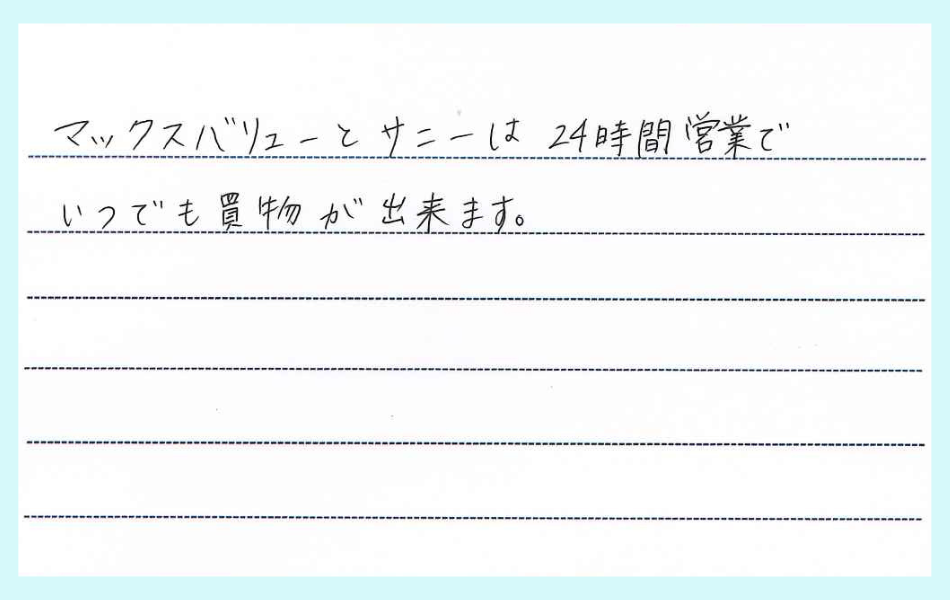 マックスバリューとサニーは24時間営業で
いつでも買物が出来ます。